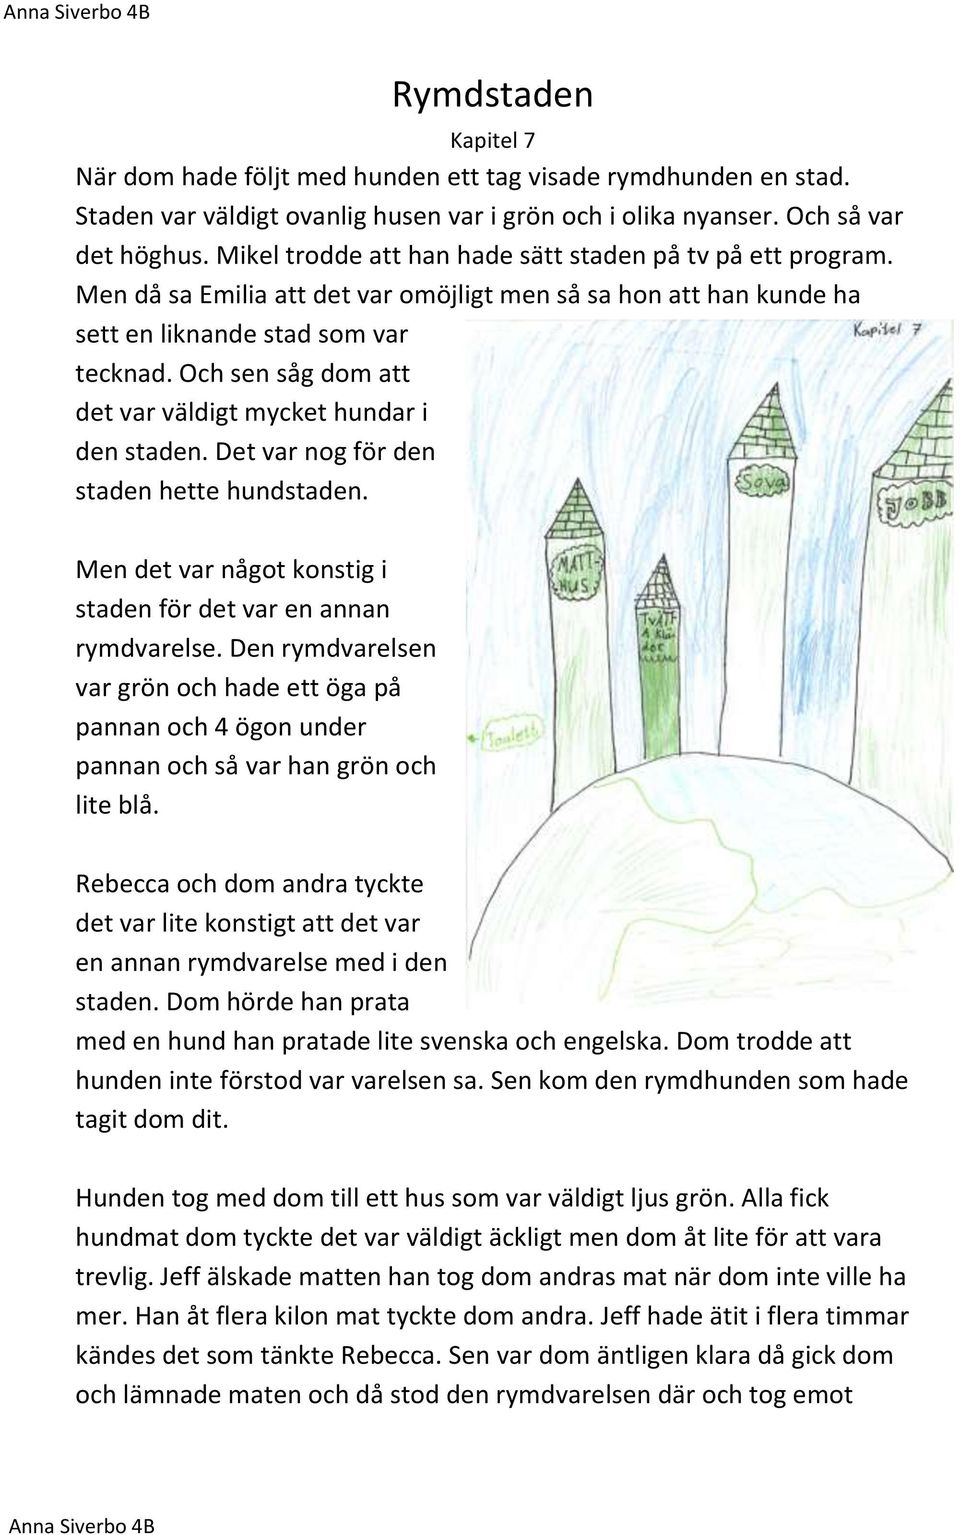 Anna Siverbo 4B
Rymdstaden
Kapitel 7
När dom hade följt med hunden ett tag visade rymdhunden en stad.
Staden var väldigt ovanlig husen var i grön och i olika nyanser. Och så var
det höghus. Mikel trodde att han hade sätt staden på tv på ett program.
Men då sa Emilia att det var omöjligt men så sa hon att han kunde ha
sett en liknande stad som var
tecknad. Och sen såg dom att
det var väldigt mycket hundar i
den staden. Det var nog för den
staden hette hundstaden.
Kapitel 7
Sova
JOBB
MATT-
HUS
TVÄTT
A klä
dor
Toalett
Men det var något konstig i
staden för det var en annan
rymdvarelse. Den rymdvarelsen
var grön och hade ett öga på
pannan och 4 ögon under
pannan och så var han grön och
lite blå.
Rebecca och dom andra tyckte
det var lite konstigt att det var
en annan rymdvarelse med i den
staden. Dom hörde han prata
med en hund han pratade lite svenska och engelska. Dom trodde att
hunden inte förstod var varelsen sa. Sen kom den rymdhunden som hade
tagit dom dit.
Hunden tog med dom till ett hus som var väldigt ljus grön. Alla fick
hundmat dom tyckte det var väldigt äckligt men dom åt lite för att vara
trevlig. Jeff älskade matten han tog dom andras mat när dom inte ville ha
mer. Han åt flera kilon mat tyckte dom andra. Jeff hade ätit i flera timmar
kändes det som tänkte Rebecca. Sen var dom äntligen klara då gick dom
och lämnade maten och då stod den rymdvarelsen där och tog emot
Anna Siverbo 4B